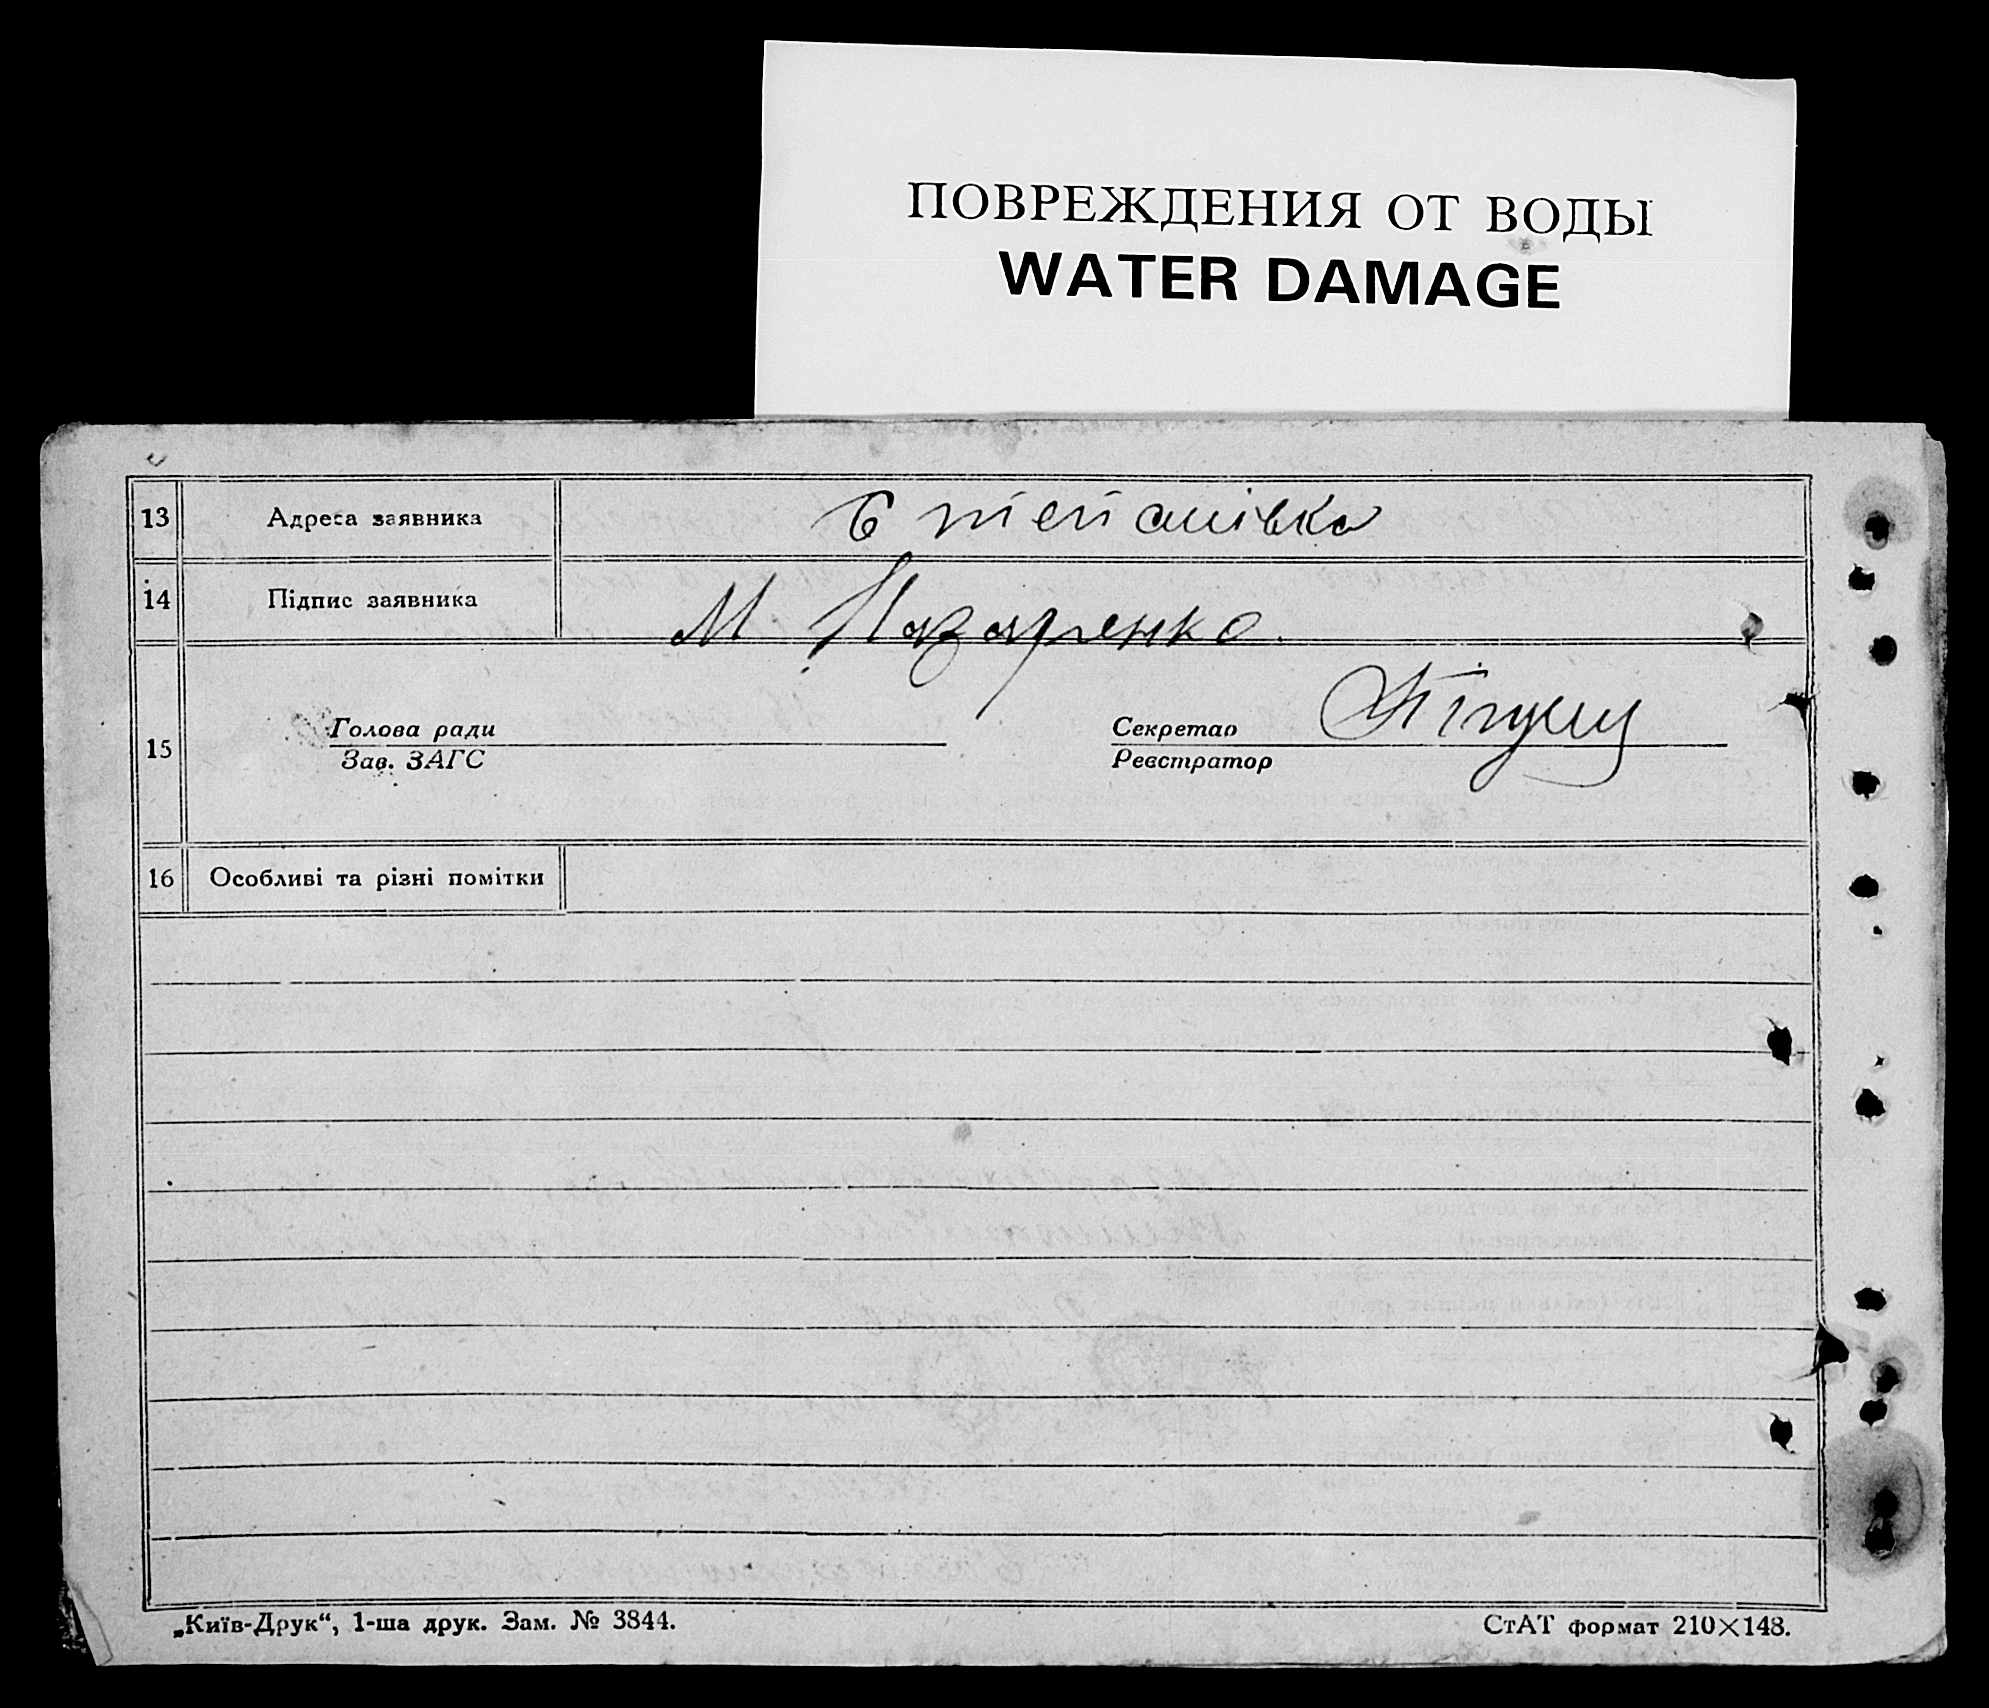 ПОВРЕЖДЕНИЯ ОТ ВОДЫ
WATER DAMAGE
13 Адреса заявника Степанівка
14 Підпис заявника М Назаренко.
Голова ради Секретар
15
Зав. ЗАГС Реєстратор
16 Особливі та різні помітки
„Київ-Друк“, 1-ша друк. Зам. № 3844. СтАТ формат 210×148.